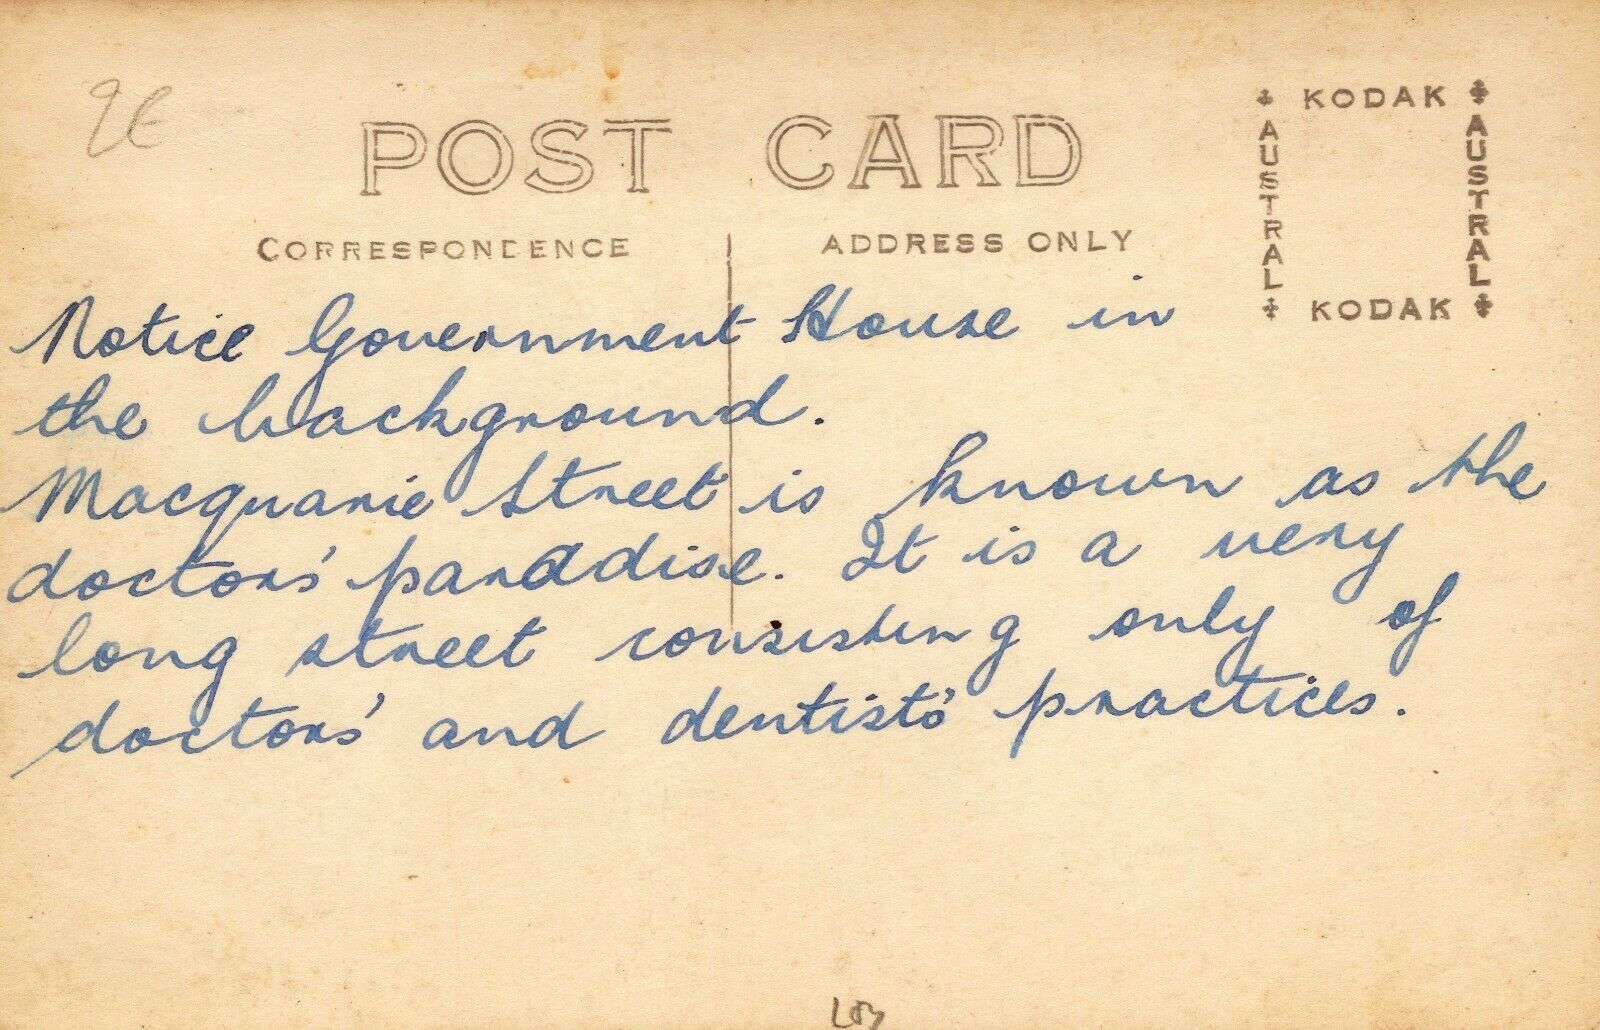 POST CARD
CORRESPONDENCE
ADDRESS ONLY
KODAK
AUSTRAL
AUSTRAL
KODAK
Notice Government House in
the background.
Macquarie Street is known as the
doctors' paradise. It is a very
long street consisting only of
doctors' and dentists' practices.